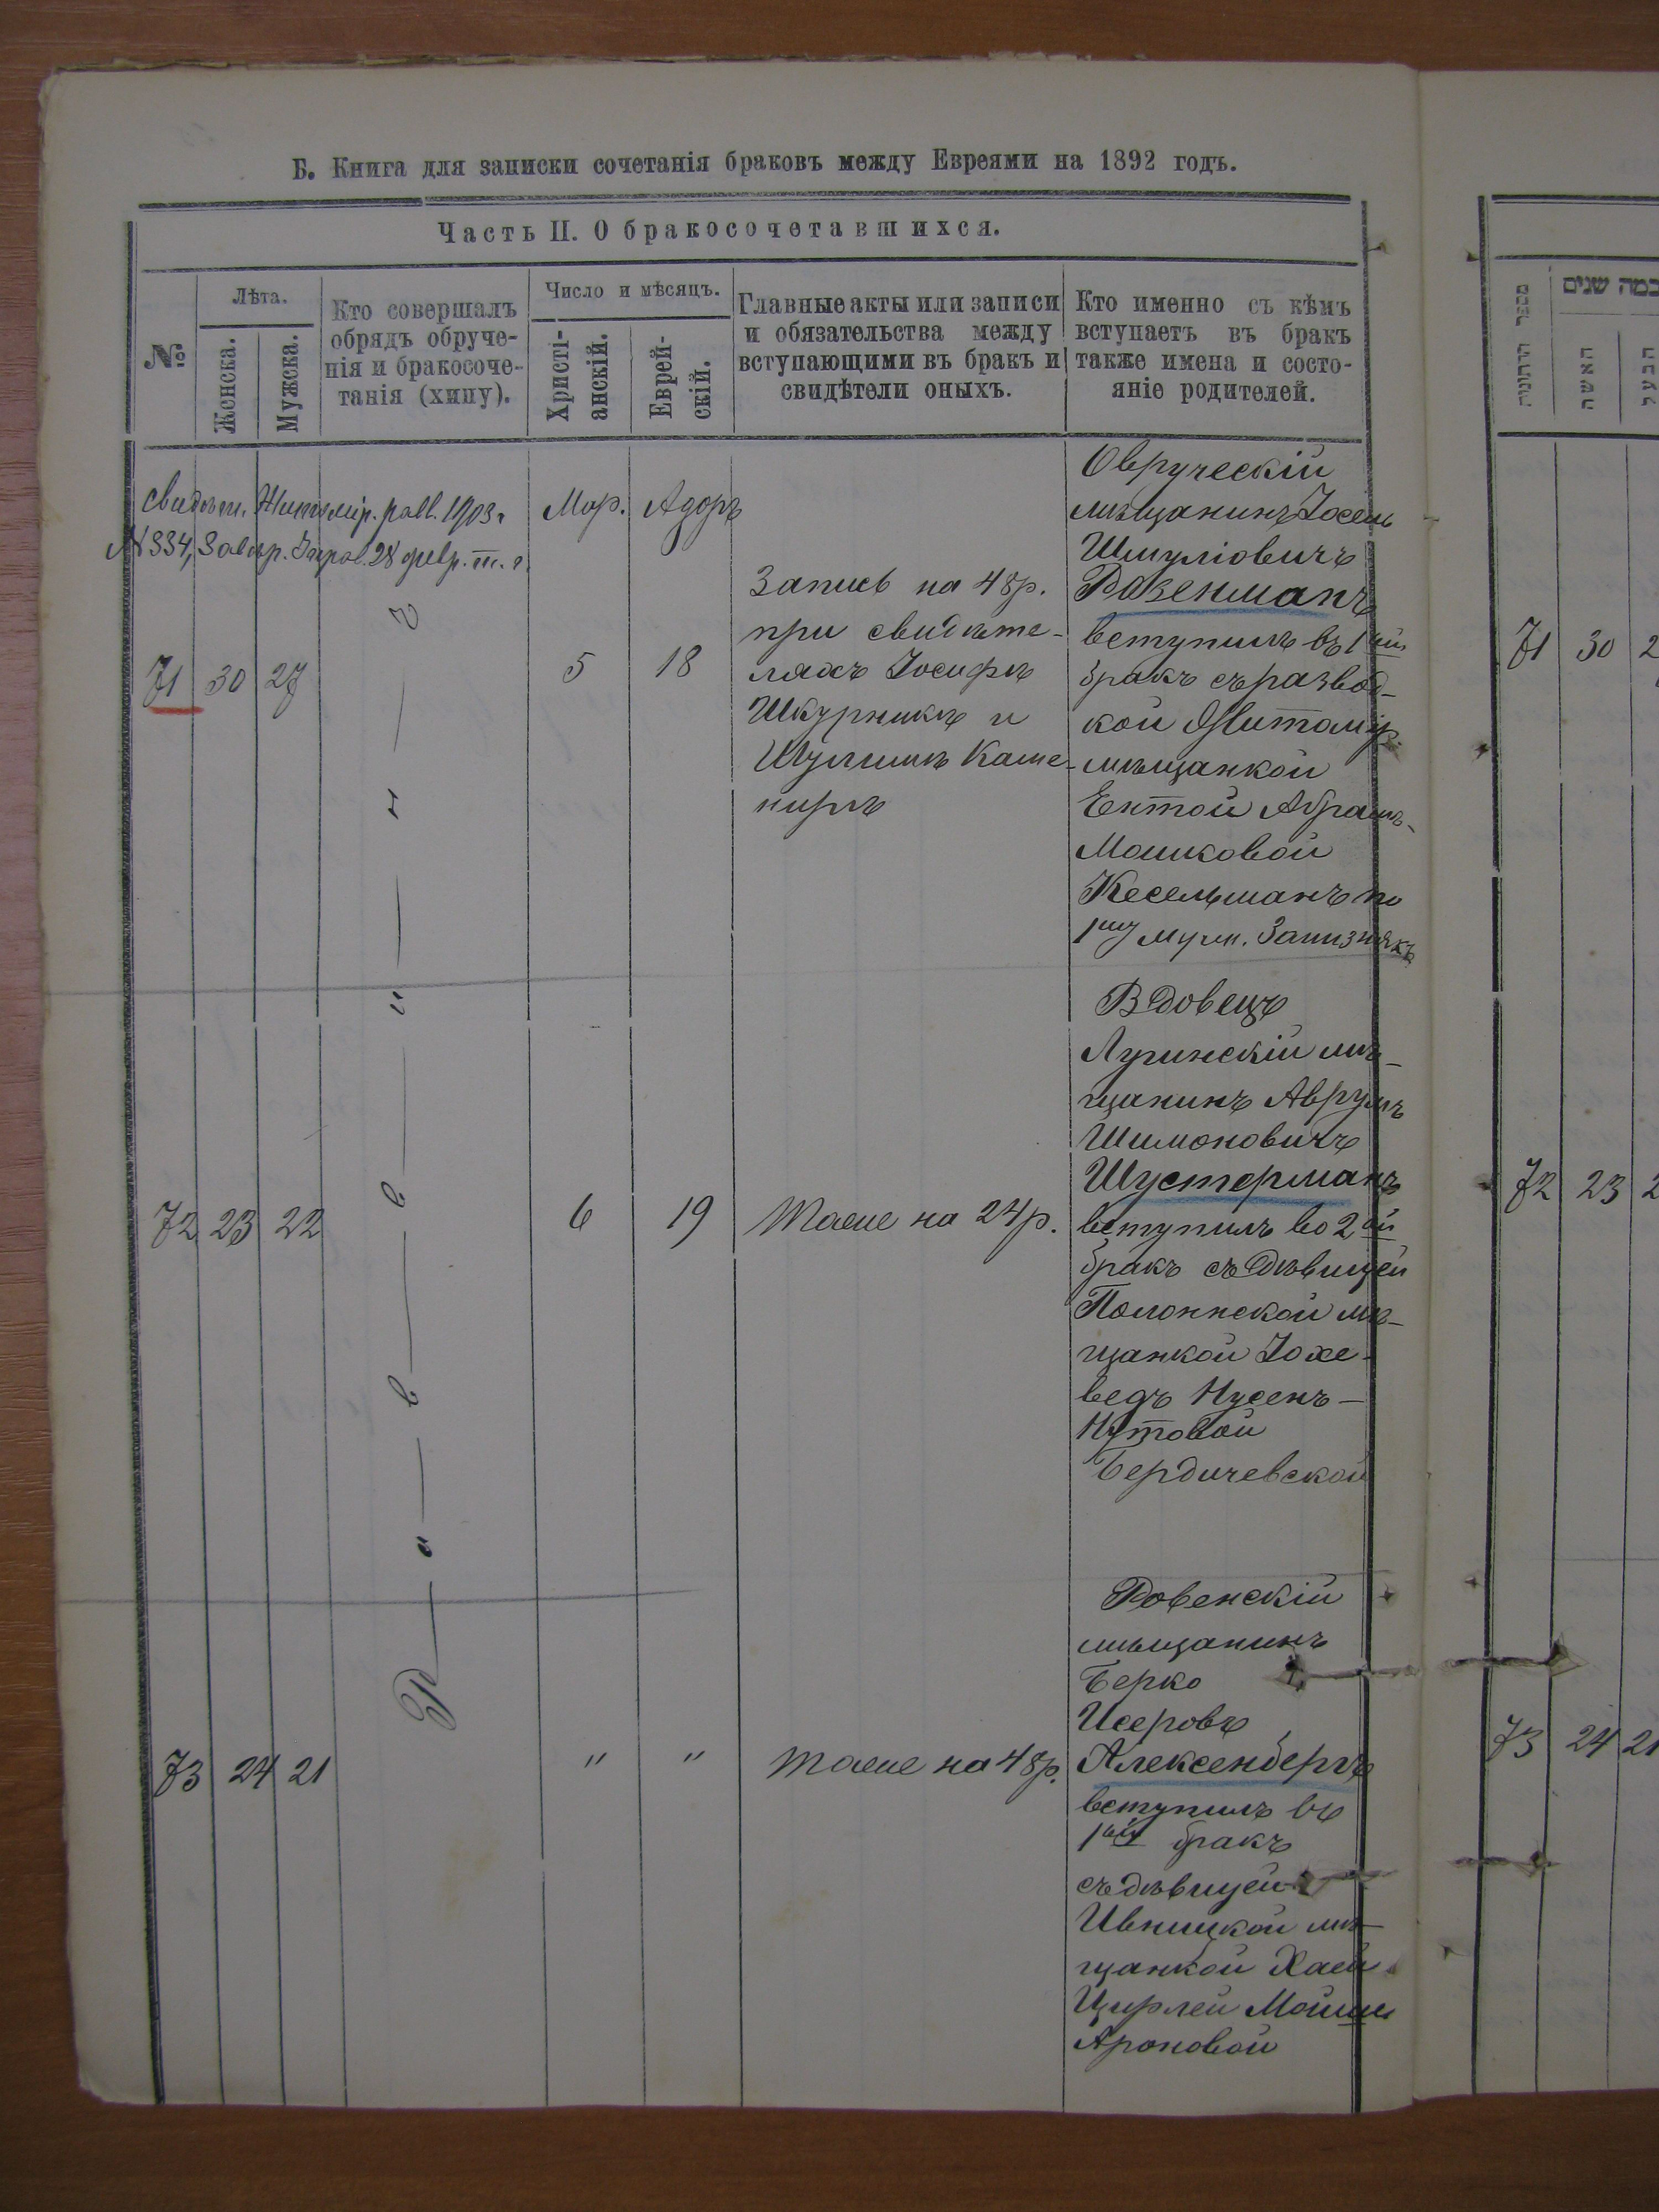 Б. Книга для записки сочетанія браковъ между Евреями на 1892 годъ.
Часть II. О бракосочетавшихся.
№
Лѣта.
Женска.
Мужска.
Кто совершалъ
обрядъ обруче-
нія и бракосоче-
танія (хипу).
Число и мѣсяцъ.
Христі-
анскій.
Еврей-
скій.
Главные акты или записи
и обязательства между
вступающими въ бракъ и
свидѣтели оныхъ.
Кто именно съ кѣмъ
вступаетъ въ бракъ
также имена и состо-
яніе родителей.
Свидѣт. Житомір. равв. 1903 г.
№ 334, 28 февр. т. г.
Раввинъ
Мар.
Адаръ
71
30
27
5
18
Запись на 48р.
при свидѣте-
ляхъ Іосифъ
Шкурникъ и
Шулимъ Каше-
ниръ
Овруческій
мѣщанинъ Іосель
Шмуліовичъ
Розенманъ
вступилъ въ 1ый
бракъ съ развод-
кой Житомір.
мѣщанкой
Ентой Абрамъ-
Мошковой
Кесельманъ по
1му муж. Зализнякъ
72
23
22
6
19
Тоже на 24р.
Вдовецъ
Лугинскій мѣ-
щанинъ Аврумъ
Шимоновичъ
Шустерманъ
вступилъ во 2ой
бракъ съ дѣвицей
Полоннской мѣ-
щанкой Іохе-
ведъ Нусенъ-
Нутовой
Бердичевской
73
24
21
"
"
Тоже на 48р.
Ровенскій
мѣщанинъ
Берко
Исеровъ
Алексенбергъ
вступилъ въ
1ый бракъ
съ дѣвицей
Ивницкой мѣ-
щанкой Хаей
Цирлей Мойше
Ароновой
מספר החתונות
כמה שנים
האשה
הבעל
71
30
2
72
23
2
73
24
21